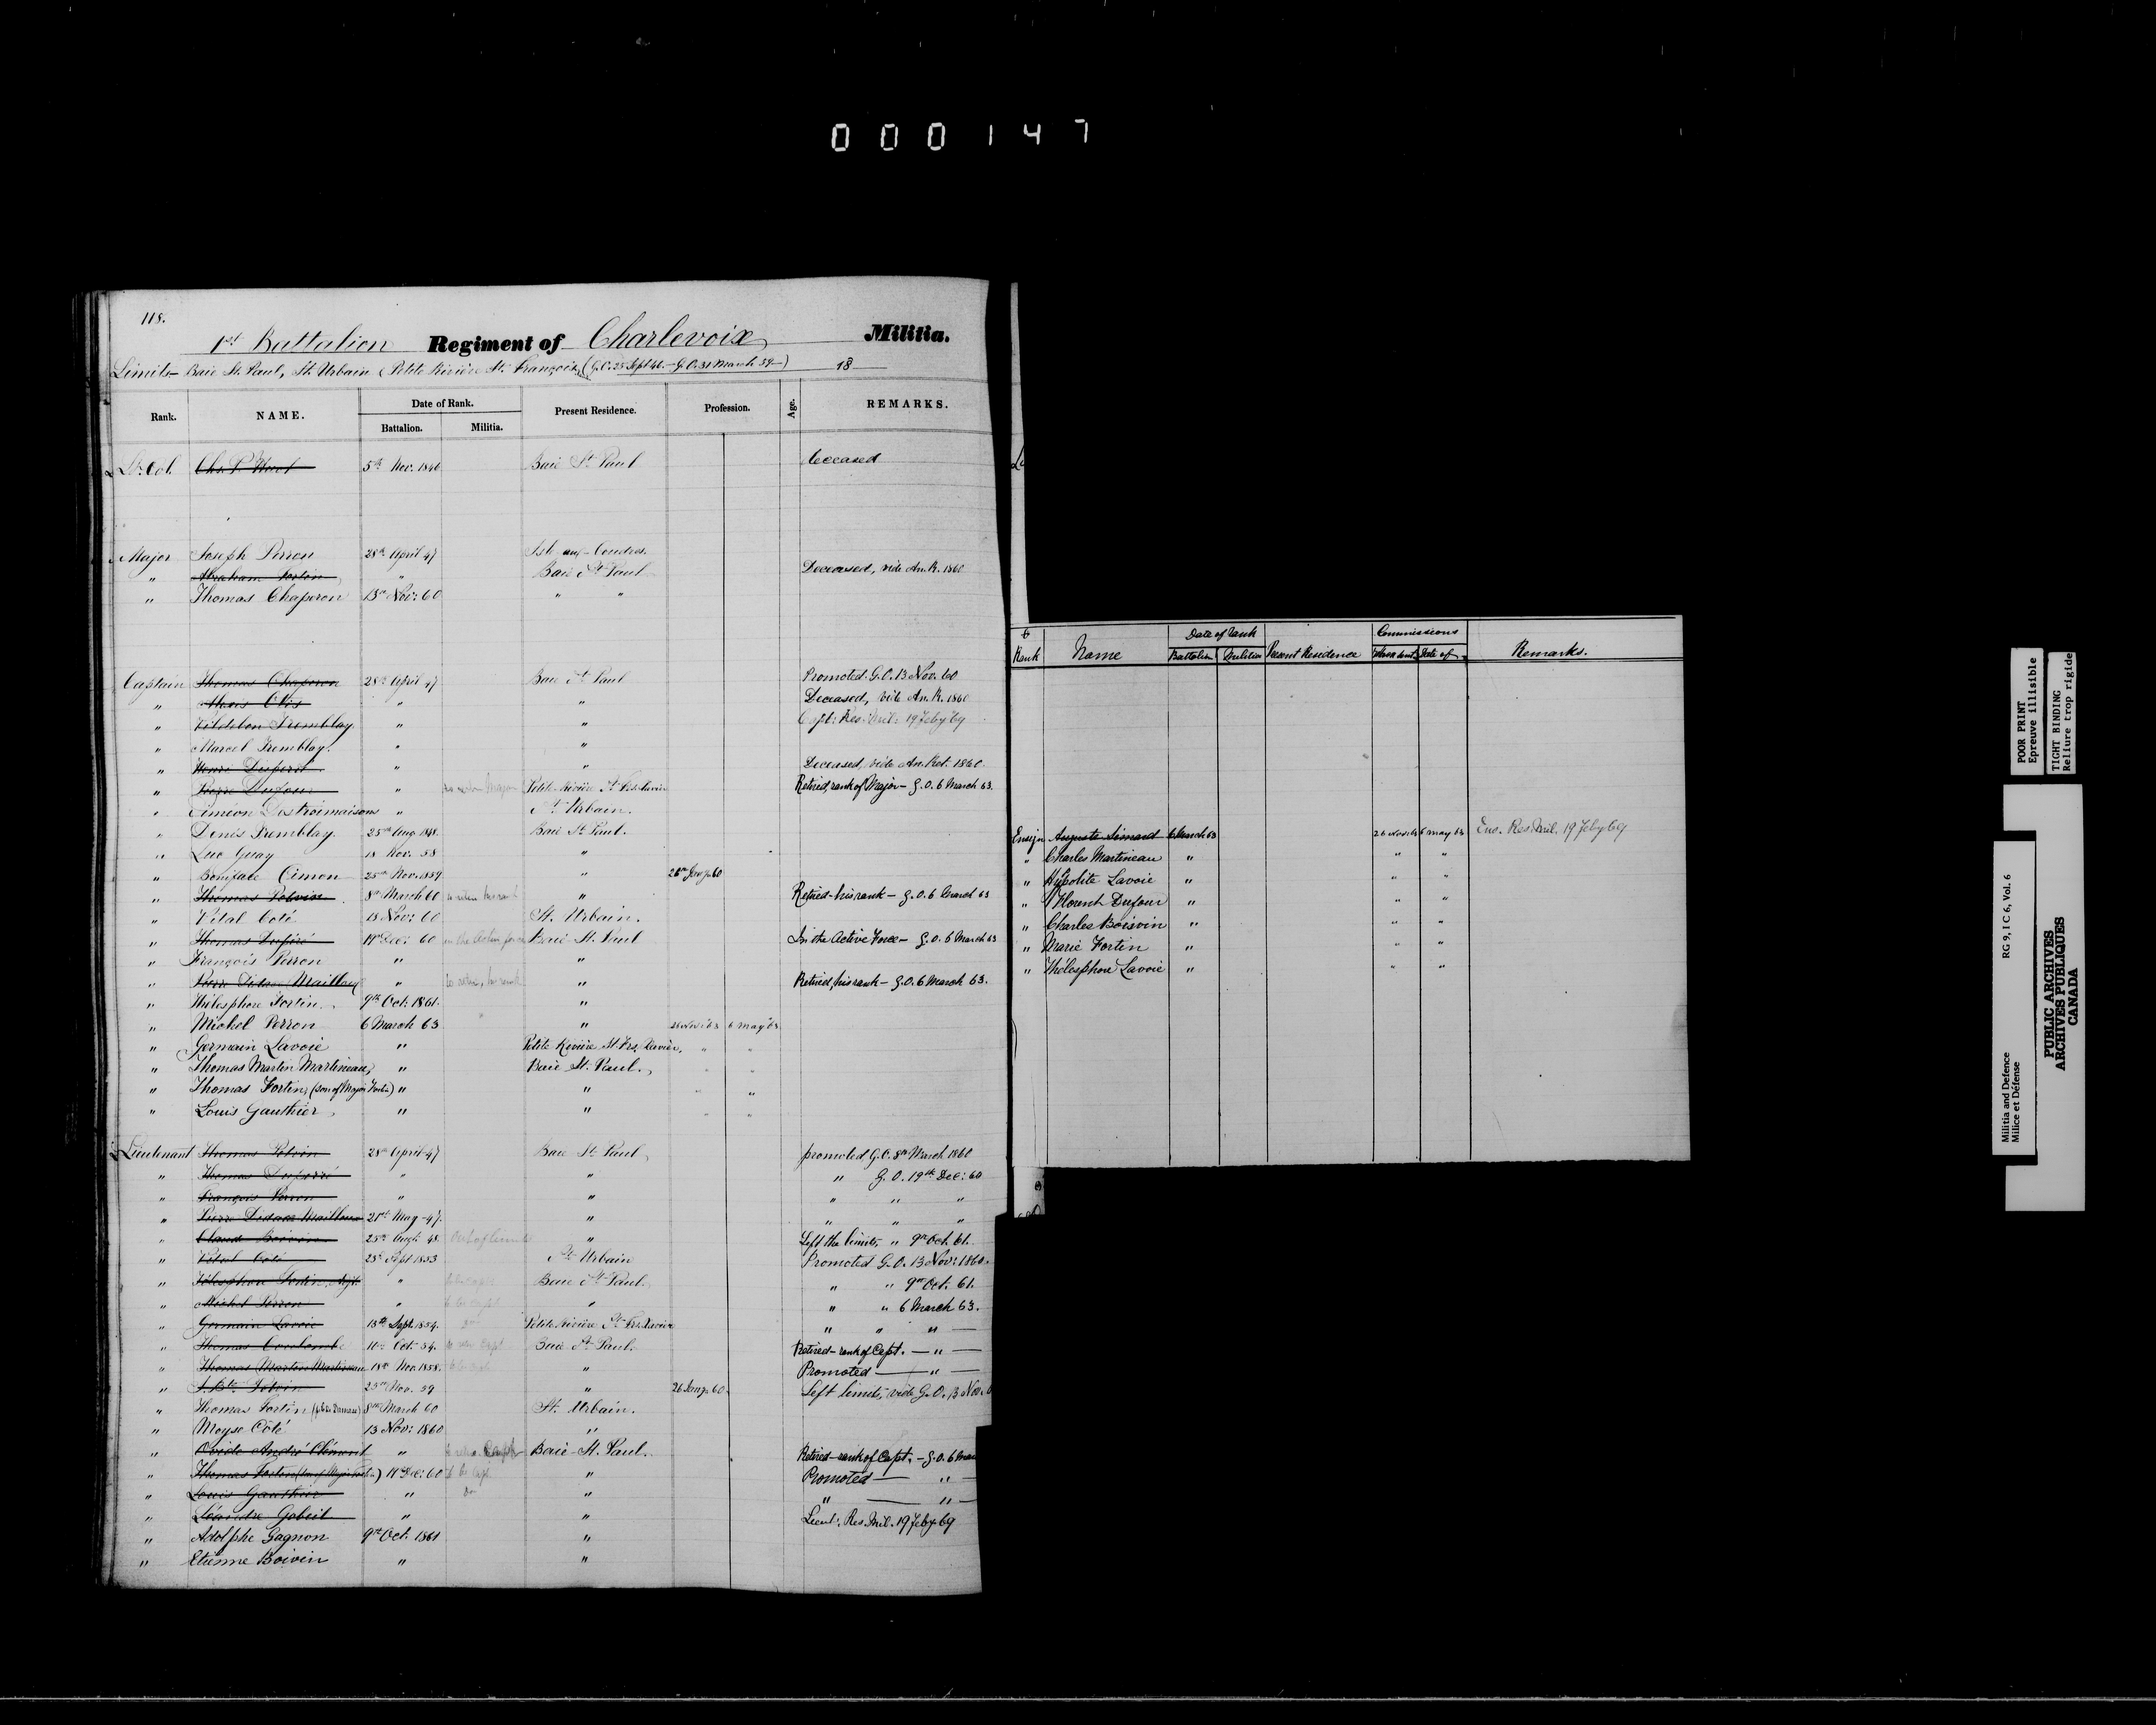 000147
118.
1st Battalion Regiment of Charlevoix Militia.
Limits - Baie St. Paul, St. Urbain, Petite Rivière St. François, (G.O. 25 Sept 46. - G.O. 31 March 59 -) 18
Rank. NAME. Date of Rank. Present Residence. Profession. Age. REMARKS.
Battalion. Militia.
Lt. Col. Chs. P. Huot 5th Nov. 1846 Baie St. Paul Deceased
Major Joseph Perron 28th April 47 Isle aux Coudres.
" Abraham Fortin " Baie St. Paul Deceased, vide An. R. 1860
" Thomas Chaperon 13th Nov: 60 " "
Captain Thomas Chaperon 28th April 47 Baie St. Paul Promoted. G.O. 13 Nov. 60
" Alexis Otis " " Deceased, vide An. R. 1860
" Tremblay " " Capt: Res. Mil: 19 Feby 69
" Marcel Tremblay. " "
" Henri Duperré " " Deceased, vide An. Ret. 1860.
" Pierre Dufour " to retire Major Petite Rivière St. Frs. Xavier Retired, rank of Major - G.O. 6 March 63.
" Siméon Destroimaisons " St. Urbain.
" Denis Tremblay. 25th Aug. 1848. Baie St. Paul.
" Luc Guay 18 Nov. 58 "
" Boniface Cimon 25th Nov. 1859 " 26th Jany. 60
" Thomas Potvin 8th March 60 to retire his rank " Retired - his rank - G.O. 6 March 63
" Vital Coté 13 Nov: 60 St. Urbain.
" Thomas Duperré 19th Dec: 60 in the Active force Baie St. Paul In the Active Force - G.O. 6 March 63
" François Perron " "
" Pierre Mailloux " to retire, his rank " Retired, his rank - G.O. 6 March 63.
" Thélesphore Fortin. 9th Oct. 1861. "
" Michel Perron 6 March 63 " 26 Nov: 63 6 May 63
" Germain Lavoie " Petite Rivière St. Frs. Xavier. " "
" Thomas Martin Martineau, " Baie St. Paul. " "
" Thomas Fortin, (son of Major Fortin) " " " "
" Louis Gauthier " " " "
Lieutenant Thomas Potvin 28th April 47 Baie St. Paul promoted G.O. 8th March 1860
" Thomas Duperré " " " G.O. 19th Dec: 60
" François Perron " " " " "
" Pierre Mailloux 21st May 47. " " " "
" Claude Boivin 25th Augt. 48. Out of limits " Left the limits, " 9th Oct. 61.
" Vital Coté 28th Sept 1853 St. Urbain Promoted G.O. 13 Nov: 1860.
" Télesphore Fortin, Adjt. " to be capt Baie St. Paul. " " 9th Oct. 61.
" Michel Perron " to be Capt " " " 6 March 63.
" Germain Lavoie 13th Sept. 1854. do Petite Rivière St. Frs. Xavier " " " —
" Thomas Coulombe 10th Oct. 54. to retire Capt Baie St. Paul. Retired - rank of Capt. — " —
" Thomas Martin Martineau 18th Nov. 1858. to be capt " Promoted — " —
" J. Bte. Potvin 25th Nov. 59 " 26 Jany. 60. Left limits, vide G.O. 13 Nov.
" Thomas Fortin 8th March 60 St. Urbain.
" Moyse Côté 13 Nov: 1860 "
" Ovide André Clément " to retire Capt Baie St. Paul. Retired - rank of Capt. - G.O. 6 Mar
" Thomas Fortin (son of Major Fortin) 19 Dec: 60 to be Capt " Promoted — " —
" Louis Gauthier " do " " — " —
" Léandre Gobeil " " Lieut. Res. Mil. 19 Feby. 69
" Adolphe Gagnon 9th Oct. 1861 "
" Etienne Boivin " "
6
Rank Name Date of Rank Present Residence Commissions Remarks.
Battalion Militia When sent Date of
Ensign Auguste Simard 6 March 63 26 Nov. 63 6 May 63 Ens. Res. Mil. 19 Feby 69
" Charles Martineau " " "
" Hypolite Lavoie " " "
" Florent Dufour " " "
" Charles Boisvin " " "
" Marie Fortin " " "
" Thélesphore Lavoie " " "
POOR PRINT
Epreuve illisible
TIGHT BINDING
Reliure trop rigide
Militia and Defence
Milice et Défense
RG 9, I C 6, Vol. 6
PUBLIC ARCHIVES
ARCHIVES PUBLIQUES
CANADA